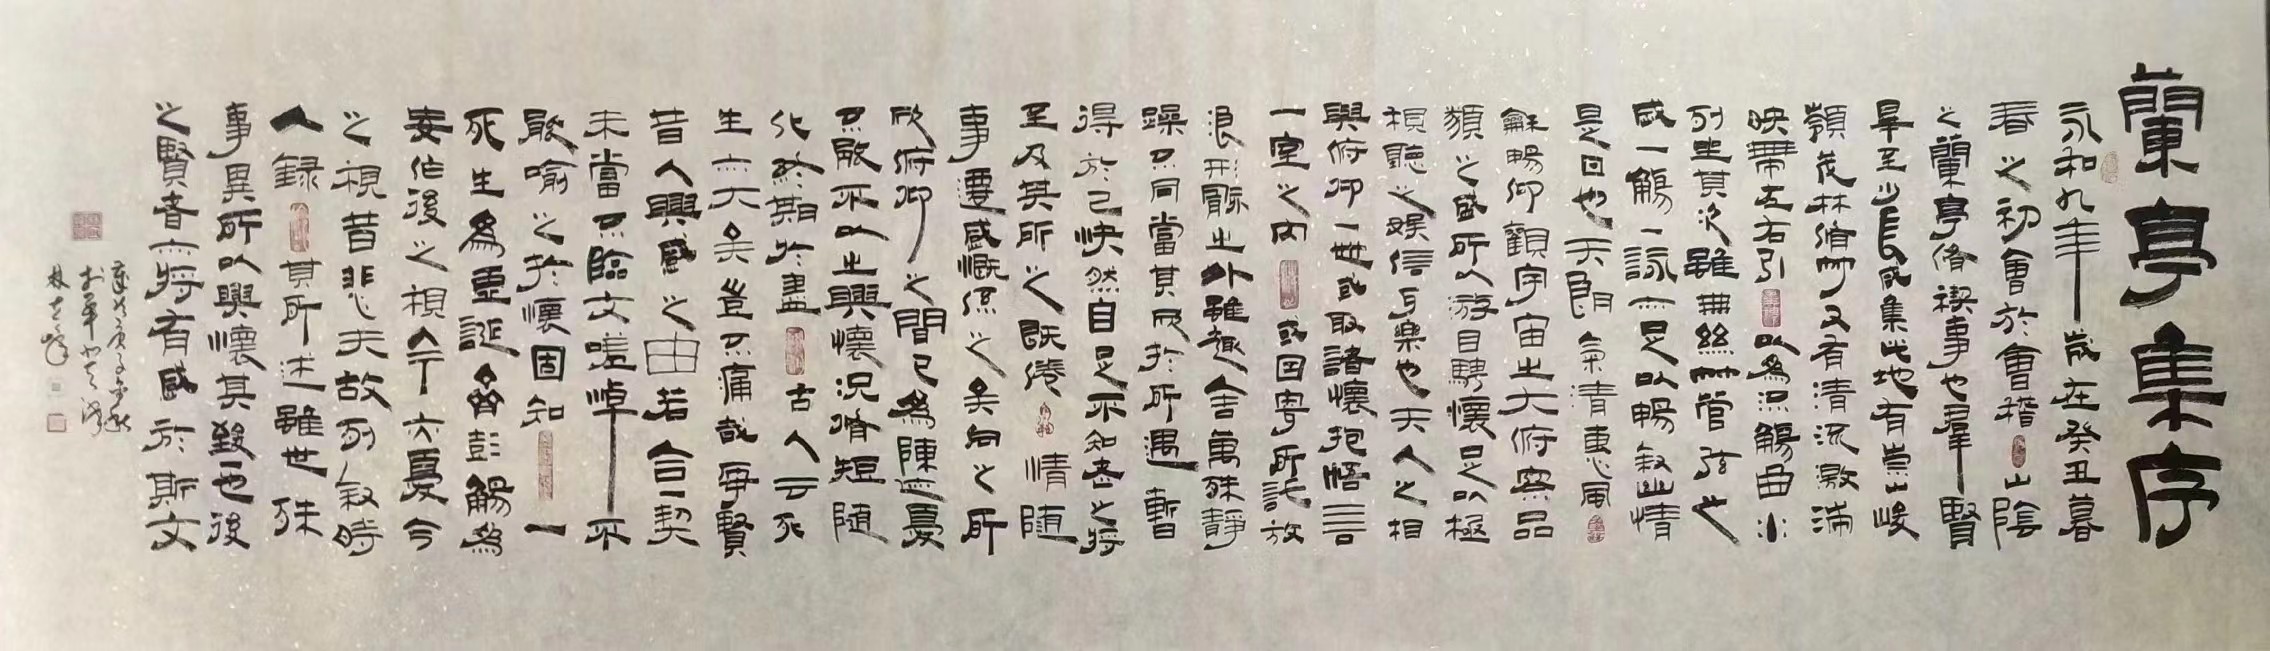 蘭亭集序
永和九年歲在癸丑暮
春之初會於會稽山陰
之蘭亭脩禊事也羣賢
畢至少長咸集此地有崇山峻
嶺茂林脩竹又有清流激湍
映帶左右引以為流觴曲水
列坐其次雖無絲竹管弦之
盛一觴一詠亦足以暢敘幽情
是日也天朗氣清惠風
龢暢仰觀宇宙之大俯察品
類之盛所以游目騁懷足以極
視聽之娛信可樂也夫人之相
與俯仰一世或取諸懷抱悟言
一室之內或因寄所託放
浪形骸之外雖趣舍萬殊靜
躁不同當其欣於所遇暫
得於己快然自足不知老之將
至及其所之既惓情隨
事遷感慨係之矣向之所
欣俯仰之間已為陳憂
不能不以之興懷況脩短隨
化終期於盡古人云死
生亦大矣豈不痛哉每賢
昔人興感之由若合一契
未嘗不臨文嗟悼不
能喻之於懷固知一
死生為虛誕齊彭觴為
妄作後之視今亦憂今
之視昔悲夫故列敘時
人錄其所述雖世殊
事異所以興懷其致也後
之賢者亦將有感於斯文
歲次庚子金秋
林志峰